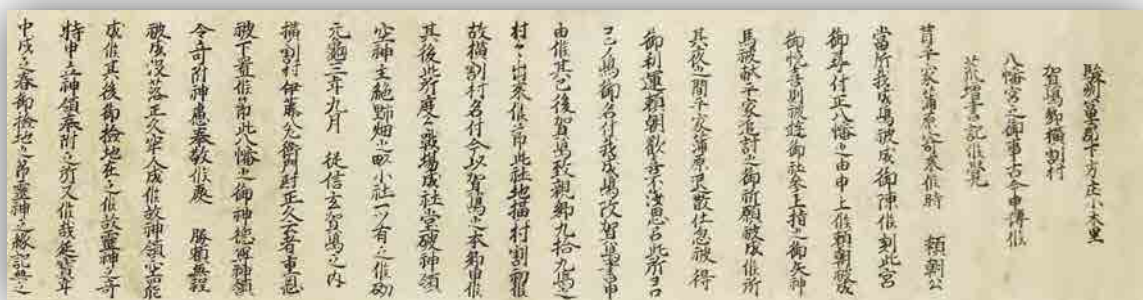 駿州冨士郡下方庄小木里
賀嶋郷横割村
八幡宮之御事古今申傳候
荒増書記候覚
昔平家蒲原迄寄来候時　頼朝公
當所我成嶋被成御陣候刻此宮
御尋付正八幡之由申上候頼朝被成
御悦喜則被遊御社参上指之御矢神
馬被献平家追討之御祈願被成候所
其夜之間平家蒲原敗散仕忽被得
御利運頼朝歓喜不浅思召此所ヲヨ
コノ嶋御名付我成嶋改賀嶋書申
由候其已後賀嶋致親郷九拾九嶋之
村々出来候之節此社地横村割初候
故横割村名付今以賀嶋之本郷申候
其後此所度々戦場成社堂破神領
空神主絶野畑之畔小社一ツ有之候砌
元亀三年九月　従信玄賀嶋之内
横割村伊藤衛尉正久者重恩
被下置候節此八幡之御神徳神領
令寄附神慮奉敬候處　勝頼無程
被成没落正久牢人成候故神領空罷
成候其後御検地在之候故霊神之寄
特申立神領奉附之所又候哉延宝年
中戌之春御検地之節霊神之縁記無之